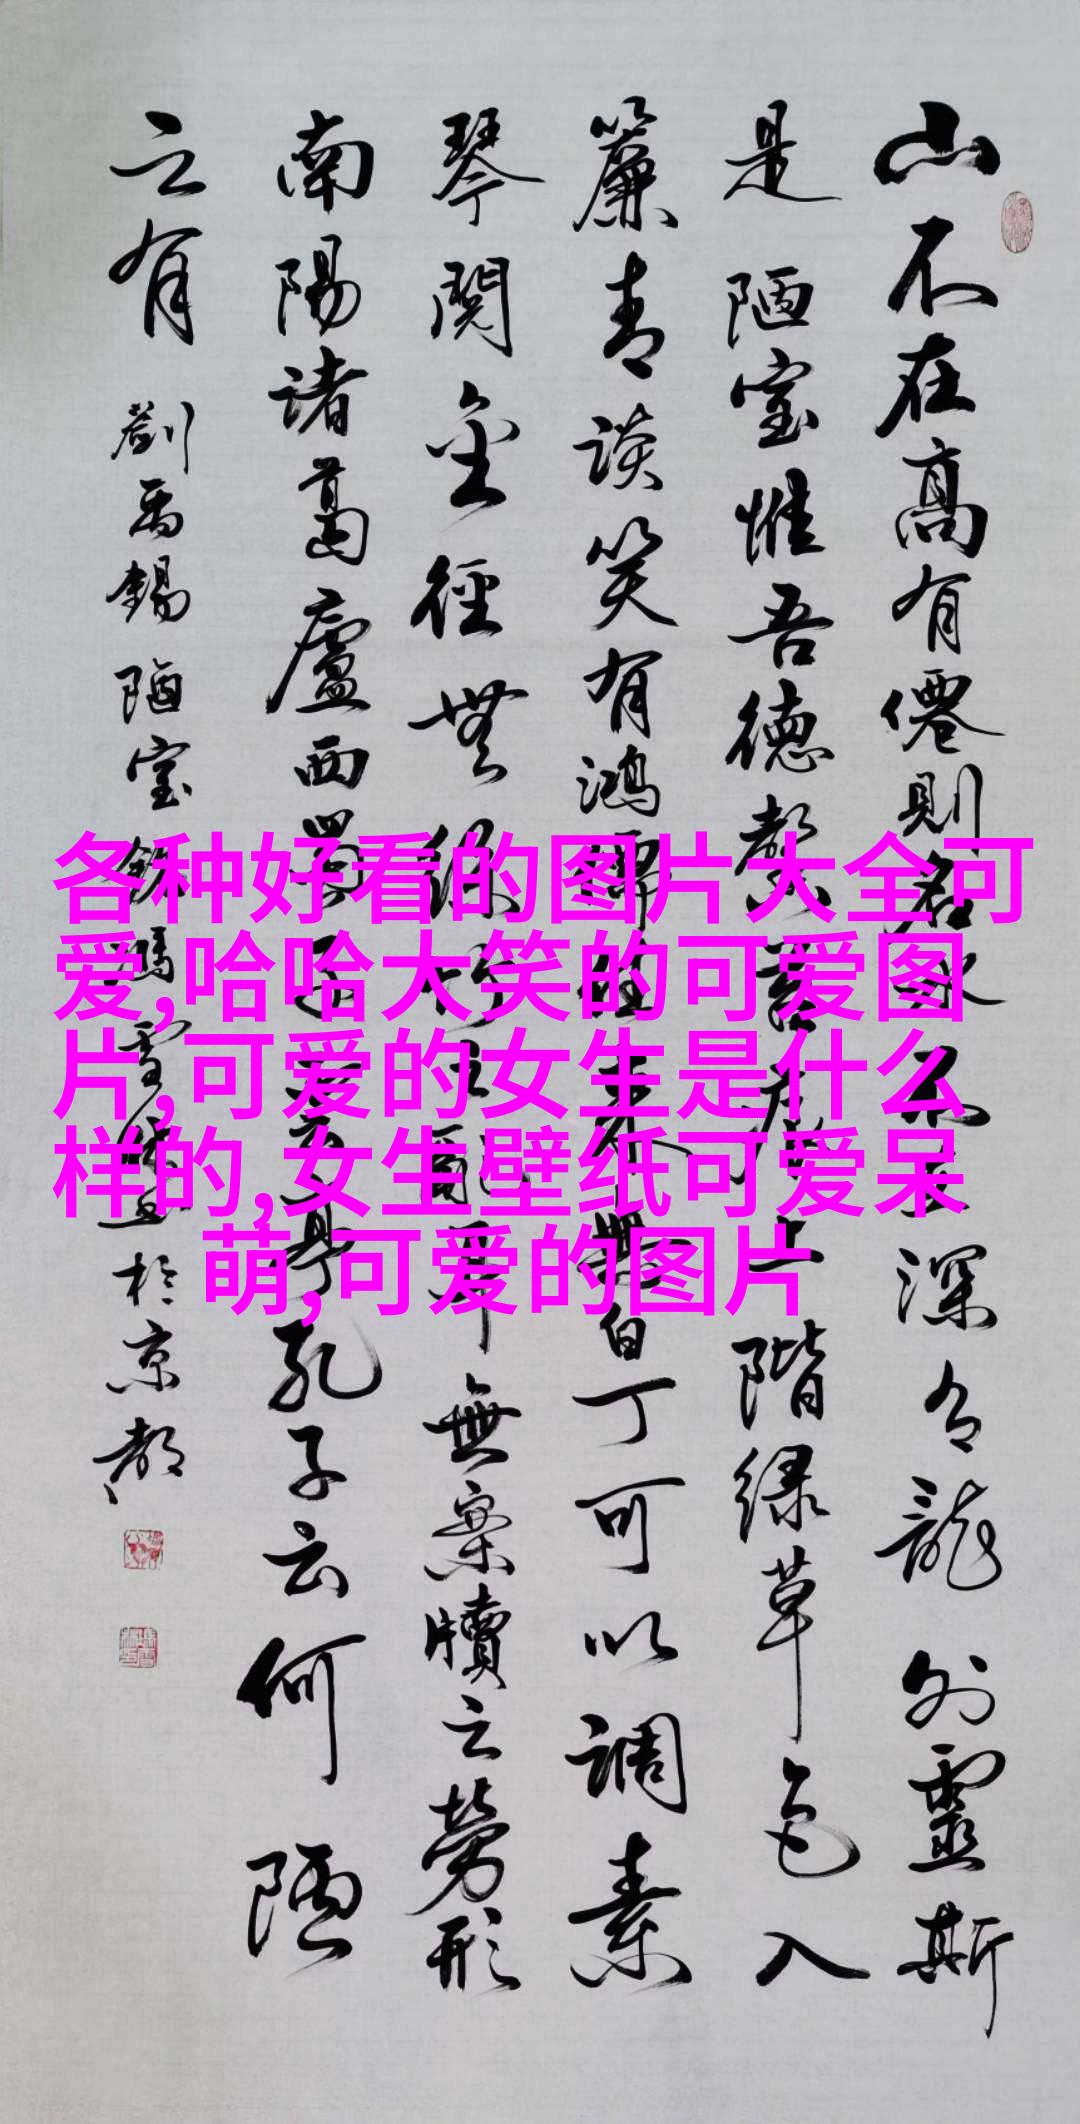 山不在高有僊則名水不在深有龍则靈斯
是陋室惟吾德馨苔痕上階绿草色入
簾青谈笑有鴻儒往来無白丁可以调素
琴閱金徑無絲竹之亂耳無案牘之勞形
南陽诸葛廬西蜀子雲亭孔子云何陋
之有 劉禹錫陋室銘 馮雪於京都
各种好看的图片大全可
爱,哈哈大笑的可爱图
片,可爱的女生是什么
样的,女生壁纸可爱呆
萌,可爱的图片